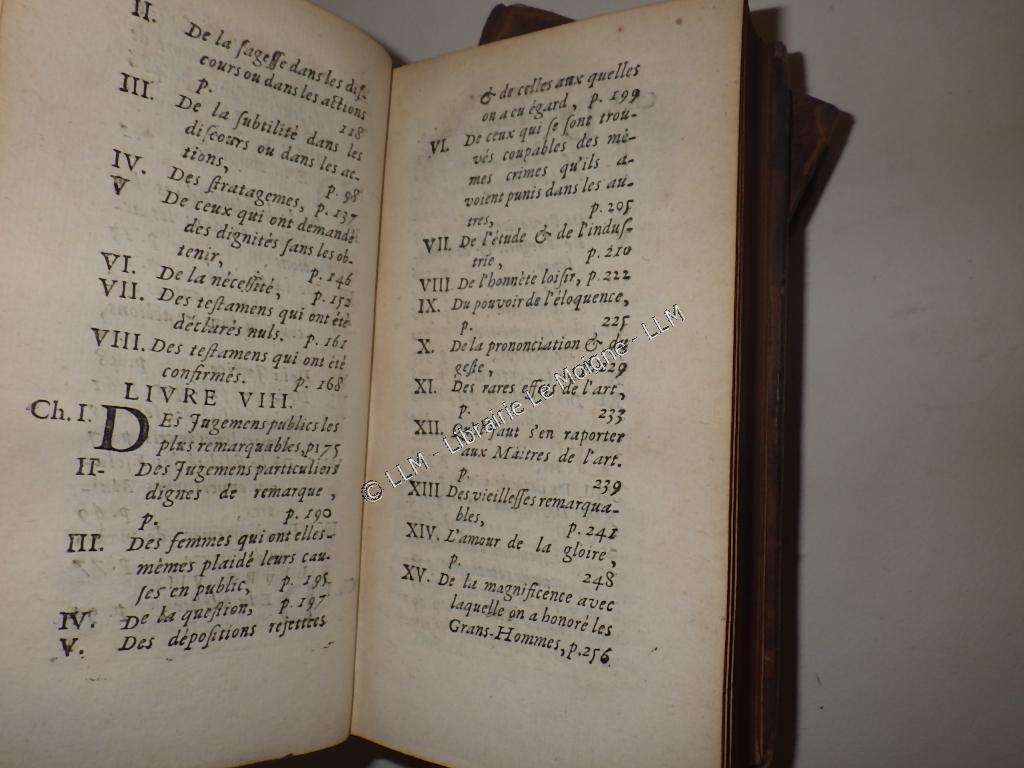 II.
De la sagesse dans les dis-
cours ou dans les actions
p. 118
III. De la subtilité dans les
discours ou dans les ac-
tions, p. 98
IV. Des stratagemes, p. 137
V De ceux qui ont demandé
des dignités sans les ob-
tenir, p. 146
VI. De la nécessité, p. 152
VII. Des testamens qui ont été
déclarés nuls. p. 161
VIII. Des testamens qui ont été
confirmés. p. 168
LIVRE VIII.
Ch. I. DEs Jugemens publics les
plus remarquables, p175
II- Des Jugemens particuliers
dignes de remarque,
p. p. 190
III. Des femmes qui ont elles-
mêmes plaidé leurs cau-
ses en public, p. 195
IV. De la question, p. 197
V. Des dépositions rejettées
& de celles aux quelles
on a eu égard, p. 199
VI. De ceux qui se sont trou-
vés coupables des mê-
mes crimes qu'ils a-
voient punis dans les au-
tres, p. 205
VII. De l'étude & de l'indus-
trie, p. 210
VIII. De l'honnête loisir, p. 222
IX. Du pouvoir de l'éloquence,
p. 225
X. De la prononciation & du
geste, 229
XI. Des rares effets de l'art,
p. 233
XII. faut s'en raporter
aux Maîtres de l'art.
p. 239
XIII Des vieillesses remarqua-
bles, p. 241
XIV. L'amour de la gloire,
p. 248
XV. De la magnificence avec
laquelle on a honoré les
Grans-Hommes, p. 256
© LLM - Librairie Le Moigne - LLM